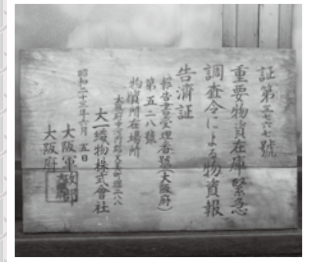 証第三七六七號
重要物資在庫緊急
調査令による物資報
告済証
報告書受理番號(大阪府)
第五二八號
物資所在場所
大一織物株式會社
昭和二十三年 月 五日
大阪軍政部
大阪府